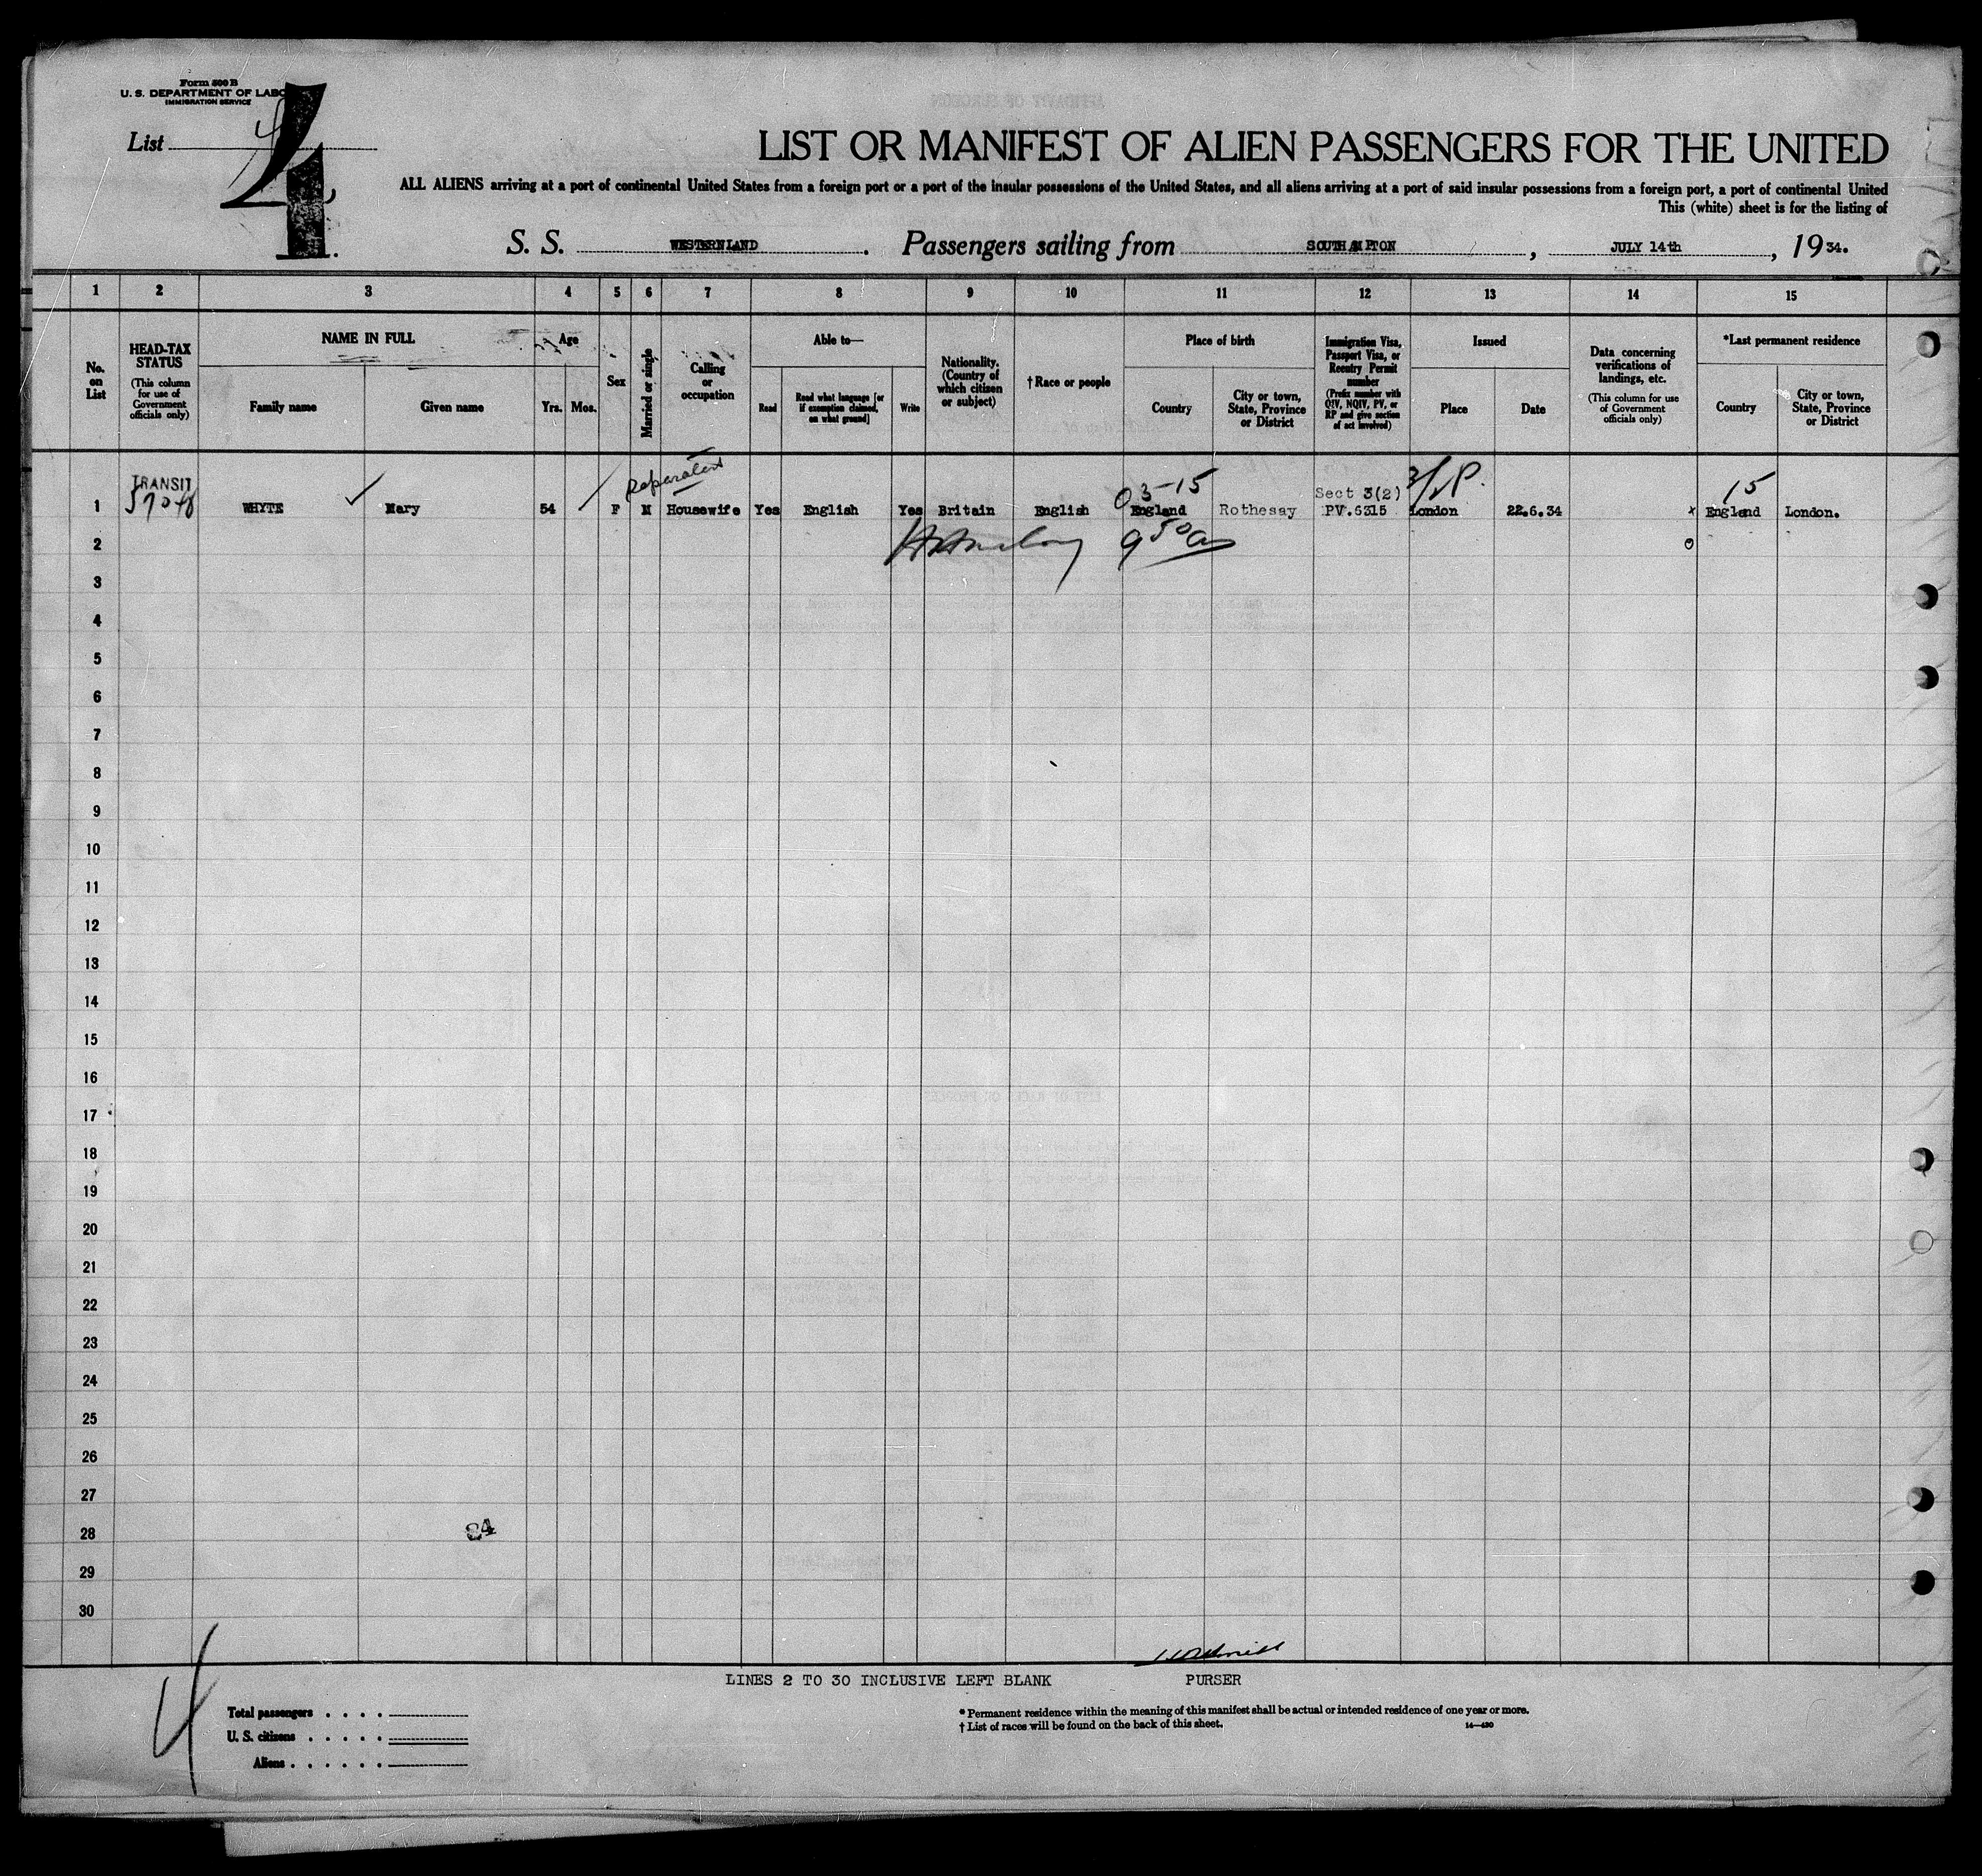 Form 500 B
U. S. DEPARTMENT OF LABO
IMMIGRATION SERVICE
List 4
4
LIST OR MANIFEST OF ALIEN PASSENGERS FOR THE UNITED
ALL ALIENS arriving at a port of continental United States from a foreign port or a port of the insular possessions of the United States, and all aliens arriving at a port of said insular possessions from a foreign port, a port of continental United
This (white) sheet is for the listing of
S. S. WESTERNLAND. Passengers sailing from SOUTHAMPTON, JULY 14th, 1934.
1 2 3 4 5 6 7 8 9 10 11 12 13 14 15
No. on List
HEAD-TAX STATUS (This column for use of Government officials only)
NAME IN FULL
Family name
Given name
Age
Yrs. Mos.
Sex
Married or single
Calling or occupation
Able to—
Read
Read what language [or if exemption claimed, on what ground]
Write
Nationality. (Country of which citizen or subject)
†Race or people
Place of birth
Country
City or town, State, Province or District
Immigration Visa, Passport Visa, or Reentry Permit number (Prefix number with QIV, NQIV, PV, or RP and give section of act involved)
Issued
Place
Date
Data concerning verifications of landings, etc. (This column for use of Government officials only)
*Last permanent residence
Country
City or town, State, Province or District
TRANSIT
03-15
Sect 3(2)
15
1 WHYTE Mary 54 F M Housewife Yes English Yes Britain English England Rothesay PV.6315 London 22.6.34 x England London.
2
3
4
5
6
7
8
9
10
11
12
13
14
15
16
17
18
19
20
21
22
23
24
25
26
27
28
29
30
LINES 2 TO 30 INCLUSIVE LEFT BLANK PURSER
4
Total passengers
U. S. citizens
Aliens
* Permanent residence within the meaning of this manifest shall be actual or intended residence of one year or more.
† List of races will be found on the back of this sheet.
14—430